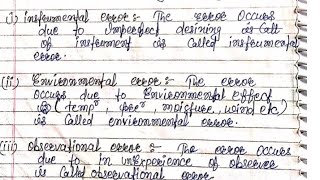 i) instrumental error :- The error occurs
due to Imperfect desining
of instrument is called instrumental
error.
(ii) Environmental error :- The error
occurs due to Environmental effect
(tempr, moisture, wind etc)
is called environmental error.
(iii) observational error :- The error occurs
due to in inExperience of observer
is called observational error.